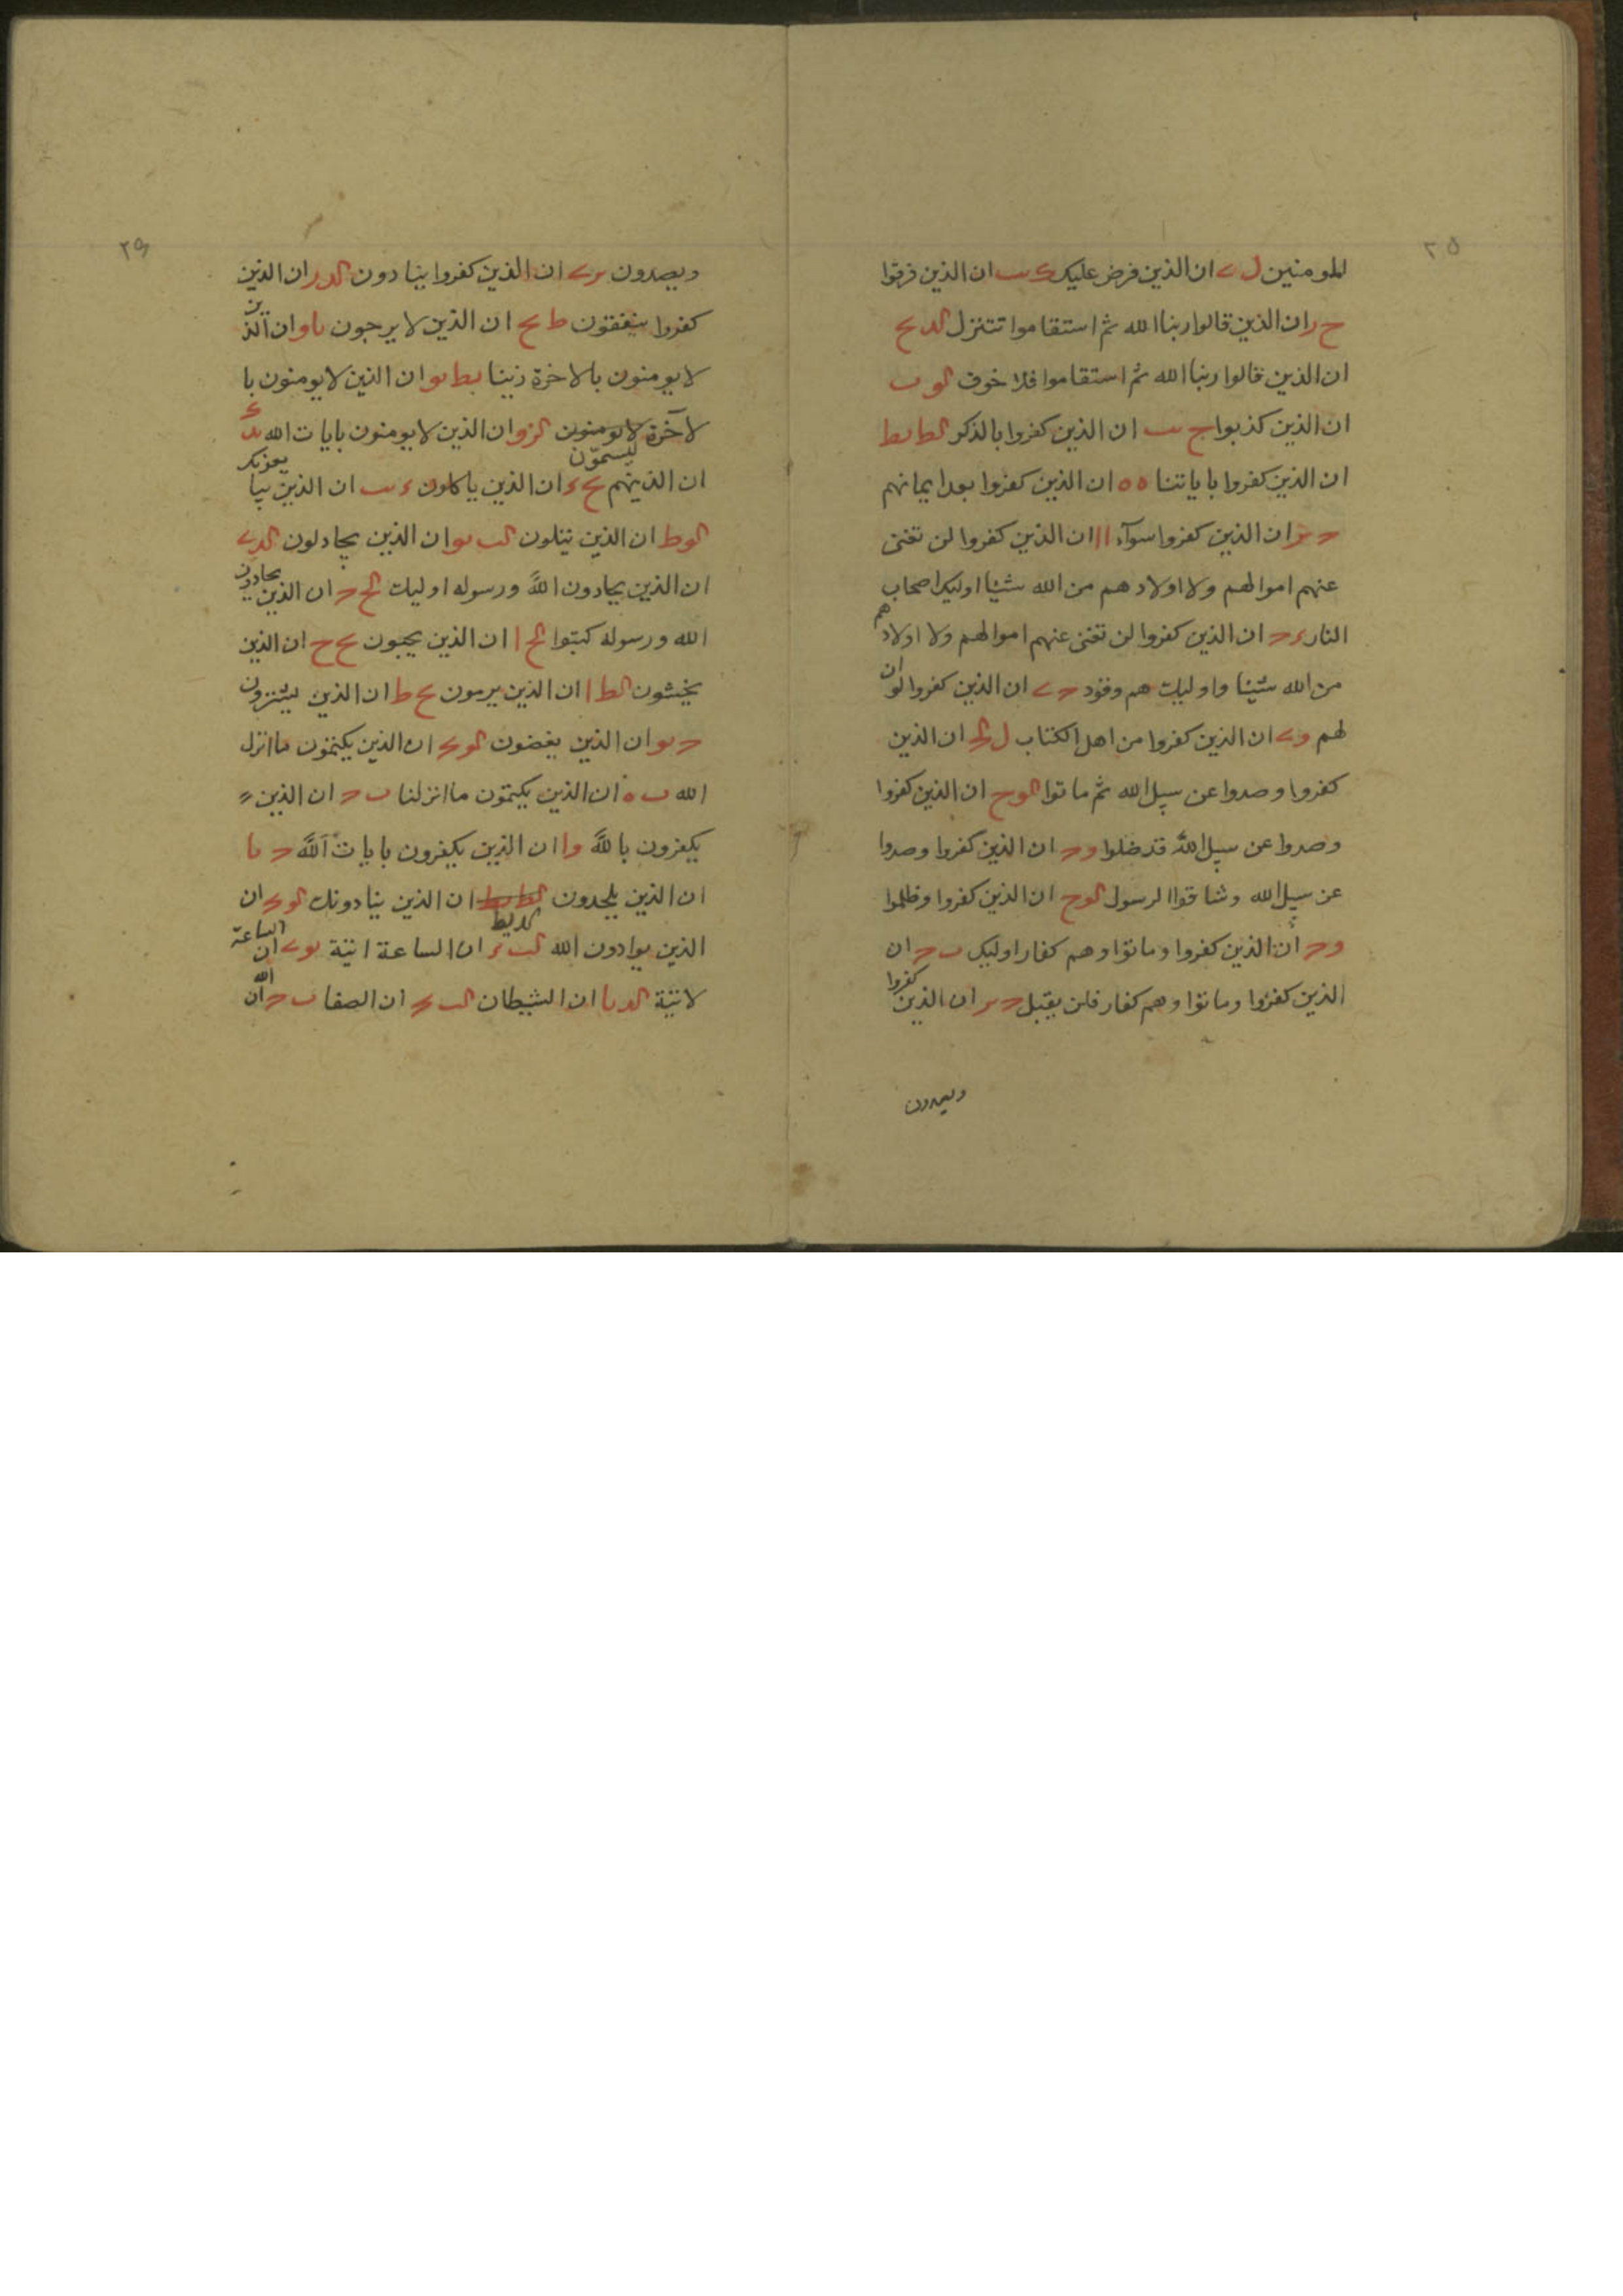 ٢٥
للمومنين ل ان الذين فرض عليك ان الذين فرقوا
ح ر ان الذين قالوا ربنا الله ثم استقاموا تتنزل الد يح
ان الذين قالوا ربنا الله ثم استقاموا فلا خوف لو ب
ان الذين كذبوا ج ان الذين كفروا بالذكر لط بط
ان الذين كفروا باياتنا ه ه ان الذين كفروا بعد ايمانهم
ان الذين كفروا سوآء اا ان الذين كفروا لن تغنى
عنهم اموالهم ولا اولادهم من الله شيئا اوليك اصحاب
النار ان الذين كفروا لن تغنى عنهم اموالهم ولا اولادهم
من الله شيئا واوليك هم وقود ان الذين كفروا لو ان
لهم ان الذين كفروا من اهل الكتاب ل ان الذين
كفروا وصدوا عن سبيل الله ثم ماتوا لوح ان الذين كفروا
وصدوا عن سبيل الله قد ضلوا ان الذين كفروا وصدوا
عن سبيل الله وشاقوا الرسول لوح ان الذين كفروا وظلموا
ان الذين كفروا وماتوا وهم كفار اوليك ان
الذين كفروا وماتوا وهم كفار فلن يقبل ان الذين كفروا
ويصدون
٢٩
ويصدون ان الذين كفروا ينادون ان الذين
كفروا ينفقون ط يح ان الذين لا يرجون يا و ان الذين
لا يومنون بالاخرة زينا بط ان الذين لا يومنون با
لآخرة لا يومنون ليسمون ان الذين لا يومنون بايات الله
ان الذينهم ان الذين ياكلون ان الذين يبايعونك
لوط ان الذين يتلون ان الذين يجادلون
ان الذين يحادون الله ورسوله اوليك ان الذين يحادون
الله ورسوله كبتوا ان الذين يحبون يح ح ان الذين
يخشون لط ا ان الذين يرمون يح ط ان الذين يشترون
ان الذين يغضون ان الذين يكتمون ما انزل
الله ب ه ان الذين يكتمون ما انزلنا ان الذين
يكفرون بالله وا ان الذين يكفرون بايات الله
ان الذين يلحدون ان الذين ينادونك ان
الذين يوادون الله ان الساعة اتية ان الساعة
لاتية ان الشيطان ان الصفا ان الله